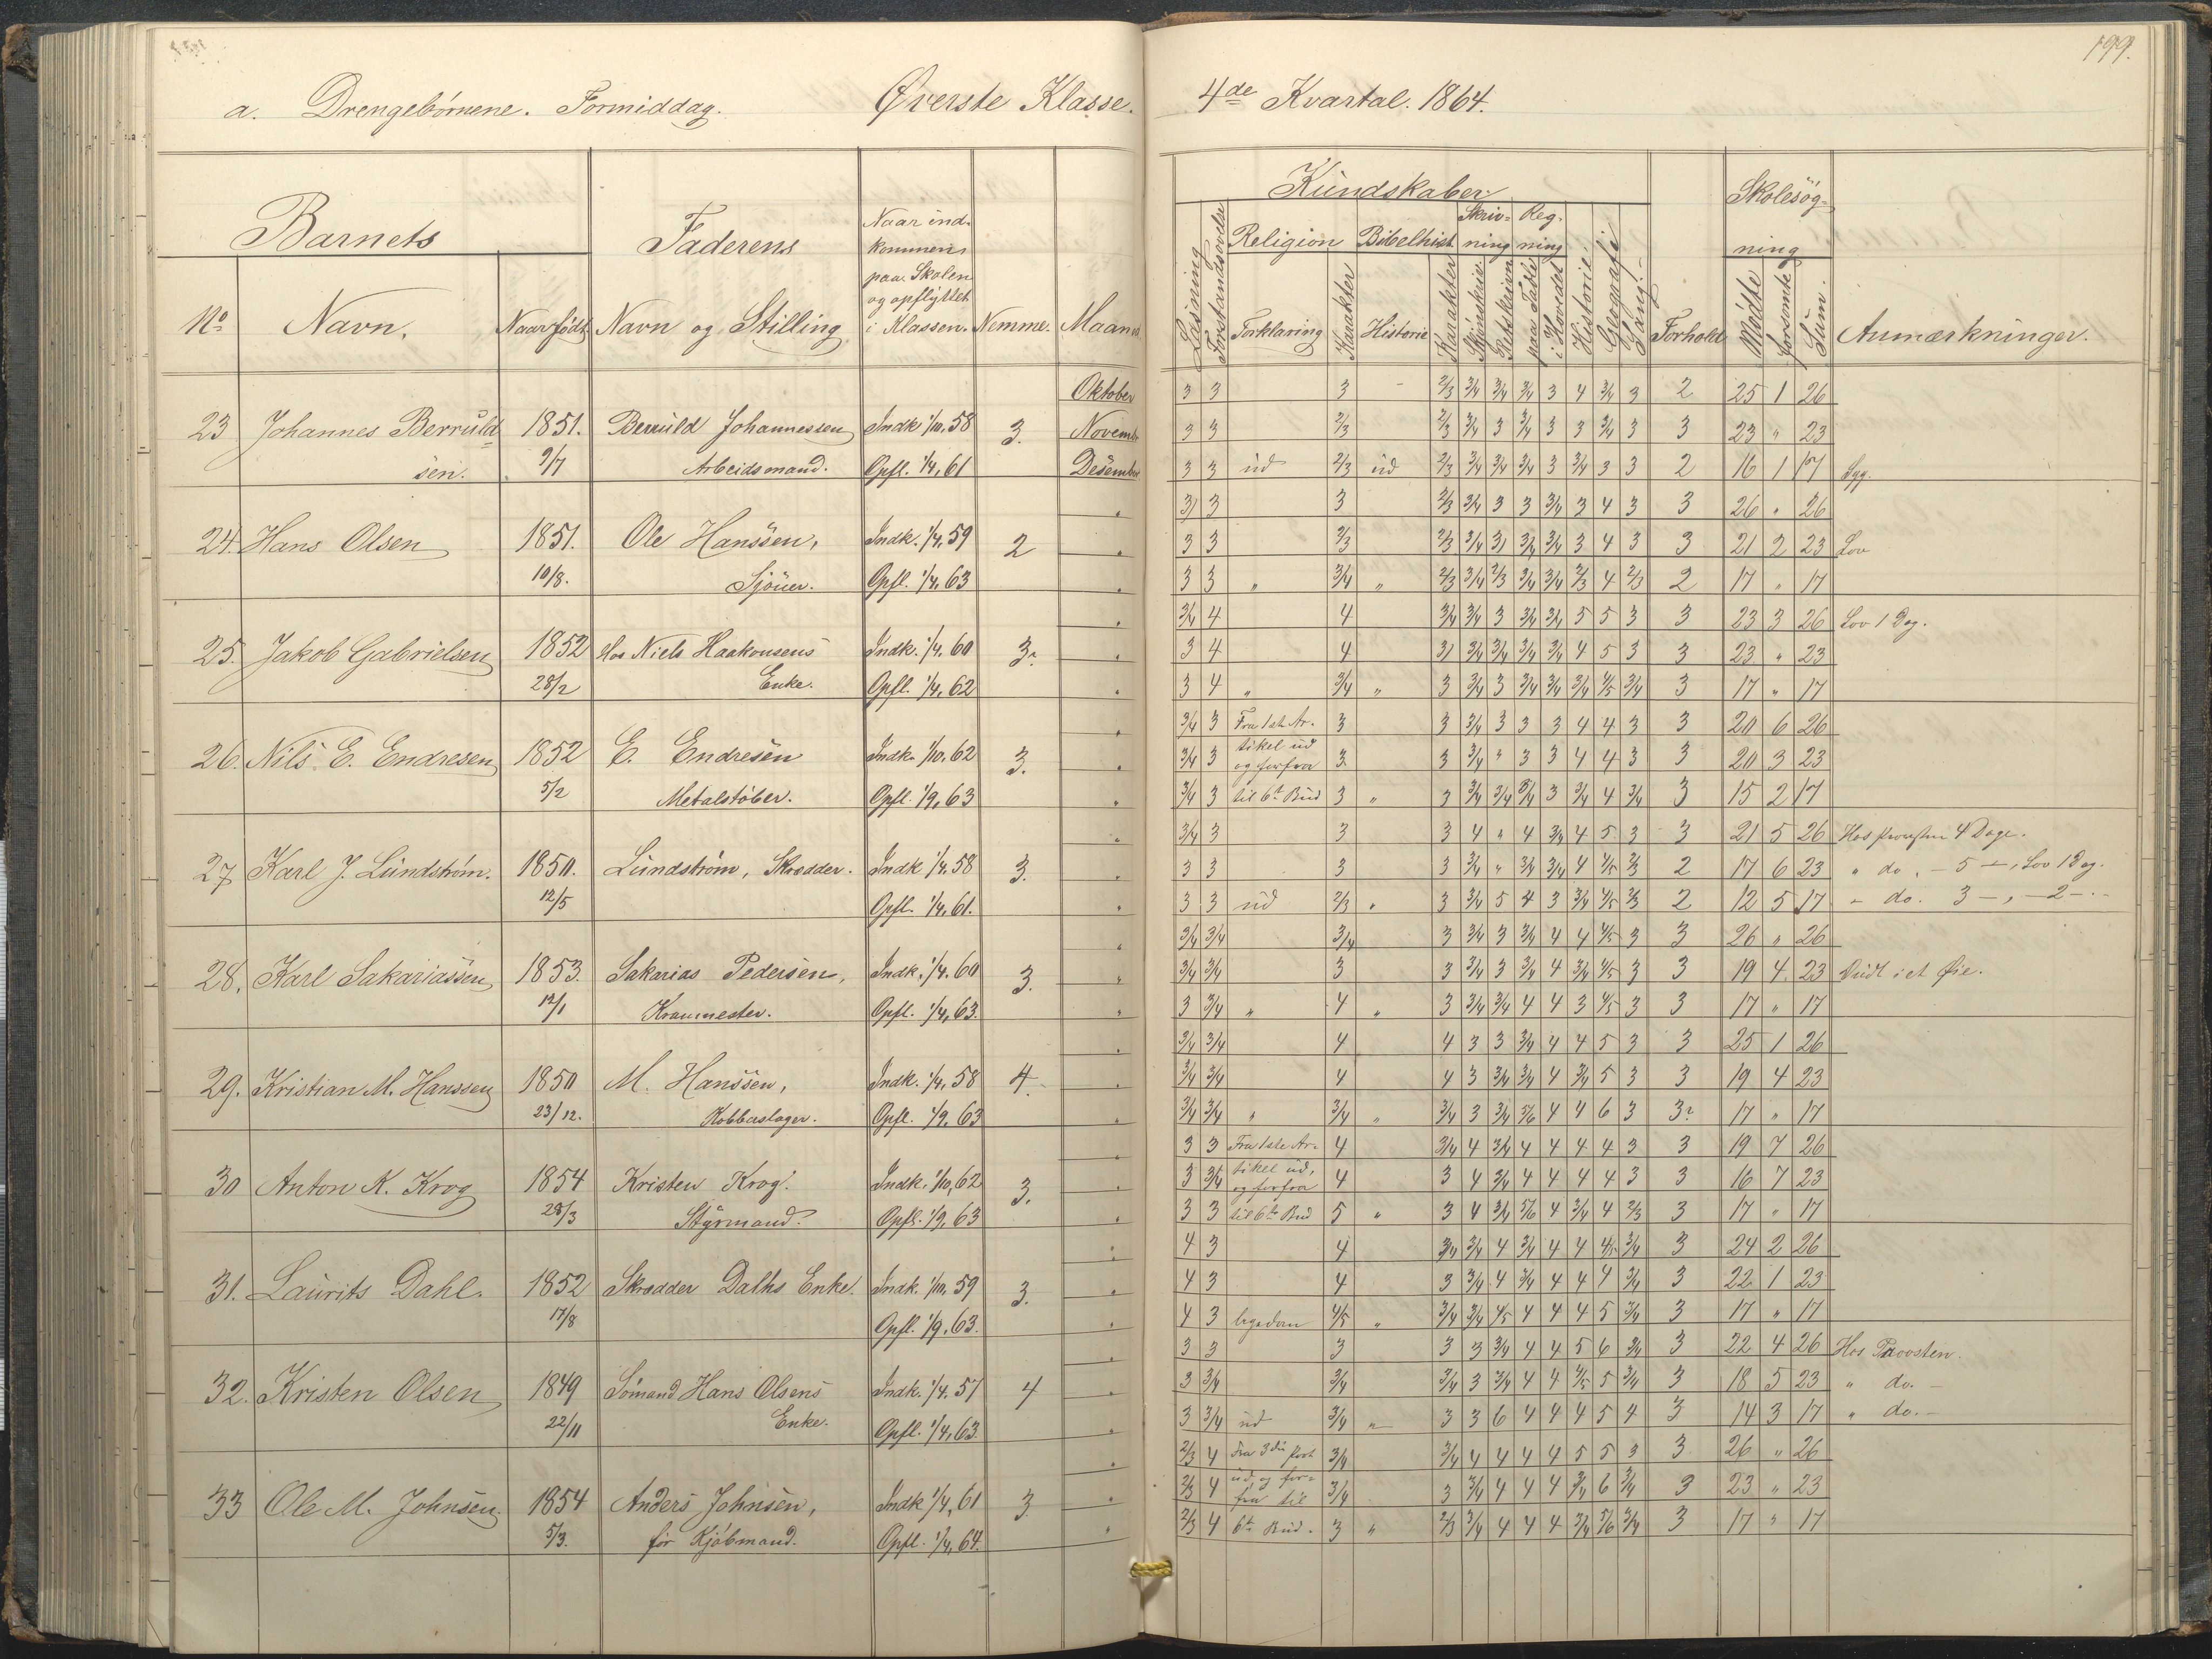 199.
a. Drengebørnene. Formiddag. Øverste Klasse. 4de Kvartal. 1864.
Barnets Faderens Naar ind- kommen paa Skolen og opflyttet i Klassen. Nemme. Maaned
No Navn. Naar født Navn og Stilling
Kundskaber Skolesøg- ning
Læsning Forstandsøvelse Religion Bibelhist. Skriv- ning Reg- ning Historie Geografi Sang Forhold Mødte forsømte Sum. Anmærkninger.
Forklaring Karakter Historie Karakter Skjønskriv. Retskrivn. paa Tavle i Hovedet
Oktober 3 3 3 - 2/3 3/4 3/4 3/4 3 4 3/4 3 2 25 1 26
23 Johannes Berruld 1851. Berruld Johannessen Indk 1/10, 58 3. November 3 3 2/3 2/3 3/4 3 3/4 3 3 3/4 3 3 23 " 23
sen. 9/7 Arbeidsmand. Opfl. 1/4, 61 Desember 3 3 ud 2/3 ud 2/3 3/4 3/4 3/4 3 3/4 3 3 2 16 1 17 Syg.
3 3 3 2/3 3/4 3 3 3/4 3 4 3 3 26 " 26
24. Hans Olsen 1851. Ole Hanssen, Indk. 1/4, 59 2 " 3 3 2/3 2/3 3/4 3 3/4 3/4 3 4 3 3 21 2 23 Lov
10/8. Sjöuer. Opfl. 1/4, 63 " 3 3 " 3/4 " 2/3 3/4 2/3 3/4 3/4 2/3 4 2/3 2 17 " 17
3/4 4 4 3/4 3/4 3 3/4 3/4 5 5 3 3 23 3 26 Lov 1 Dag.
25. Jakob Gabrielsen 1852 Hos Niels Haakonsens Indk. 1/4, 60 3. " 3 4 4 3 3/4 3/4 3/4 3/4 4 5 3 3 23 " 23
28/2 Enke. Opfl. 1/4, 62 " 3 4 " 3/4 " 3 3/4 3 3/4 3/4 3/4 4/5 3/4 3 17 " 17
3/4 3 Fra 1ste Ar- 3 3 3/4 3 3 3 4 4 3 3 20 6 26
26. Nils E. Endresen 1852 E. Endresen Indk. 1/10, 62 3. " 3/4 3 tikel ud og forfra 3 3 3/4 " 3 3 4 4 3 3 20 3 23
5/2 Metalstøber. Opfl. 1/9, 63 " 3/4 3 til 6te Bud 3 " 3 3/4 3/4 3/4 3 3/4 4 3/4 3 15 2 17
3/4 3 3 3 4 " 4 3/4 4 5 3 3 21 5 26 Hos Provsten 4 Dage.
27 Karl J. Lundstrøm. 1850. Lundstrøm, Skrædder. Indk 1/4, 58 3. " 3 3 3 3 3/4 " 3/4 3/4 4 4/5 2/3 2 17 6 23 " do. - 5 -, Lov 1 Dag.
12/5 Opfl. 1/4, 61. " 3 3 ud 2/3 " 3 3/4 5 4 3 3/4 4/5 2/3 2 12 5 17 - do. 3 -, - 2 -.
3/4 3/4 3/4 3 3/4 3 3/4 4 4 4/5 3 3 26 " 26
28. Karl Sakariassen 1853. Sakarias Pedersen, Indk. 1/4, 60 3. " 3/4 3/4 3 3 3/4 3 3/4 4 3/4 4/5 3 3 19 4 23 Ondt i et Øie.
12/1 Kranmester. Opfl. 1/4, 63. " 3 3/4 " 4 " 3 3/4 3/4 4 4 3 4/5 3 3 17 " 17
3/4 3/4 4 4 3 3 3/4 4 4 5 3 3 25 1 26
29. Kristian M. Hanssen 1850 M. Hanssen, Indk. 1/4, 58 4. " 3/4 3/4 4 4 3 3/4 3/4 4 3/4 5 3 3 19 4 23
23/12. Kobberslager. Opfl. 1/9, 63 " 3/4 3/4 " 3/4 " 3/4 3 3/4 5/6 4 4 6 3 3? 17 " 17
3 3 Fra 1ste Ar- 4 3/4 4 3/4 4 4 4 4 3 3 19 7 26
30 Anton K. Krog 1854 Kristen Krog. Indk. 1/10, 62 3. " 3 3/4 tikel ud, og forfra 4 3 4 3/4 4 4 4 4 3 3 16 7 23
28/3 Styrmand. Opfl. 1/9, 63 " 3 3 til 6te Bud 5 " 3 4 3/4 5/6 4 3/4 4 2/3 3 17 " 17
4 3 4 3/4 3/4 4 3/4 4 4 4/5 3/4 3 24 2 26
31. Laurits Dahl. 1852 Skrædder Dalhs Enke. Indk. 1/10, 59 3. " 4 3 4 3 3/4 4 3/4 4 4 4 3/4 3 22 1 23
17/8 Opfl. 1/9, 63. " 4 3 ligedan 4/5 " 3/4 3/4 4/5 4 4 4 5 3/4 3 17 " 17
3 3 3 3 3 3/4 4 4 5 6 3/4 3 22 4 26 Hos Provsten.
32. Kristen Olsen 1849 Sömand Hans Olsens Indk. 1/4, 57 4 " 3 3/4 3/4 3/4 3 3/4 4 4 4/5 5 3/4 3 18 5 23 " do. -
22/11 Enke. Opfl. 1/4, 63. " 3 3/4 ud 3/4 " 3 3 6 4 4 4 5 4 3 14 3 17 " do. -
2/3 4 Fra 3die Part 3/4 3/4 4 4 4 4 5 5 3 3 26 " 26
33 Ole M. Johnsen. 1854 Anders Johnsen, Indk 1/4, 61 3. " 2/3 4 ud, og for- fra til 3/4 3 3/4 4 4 4 3/4 6 3/4 3 23 " 23
5/3. før Kjøbmand. Opfl. 1/4, 64. " 2/3 4 6te Bud. 3 " 2/3 3/4 4 4 4 3/4 5/6 3/4 3 17 " 17